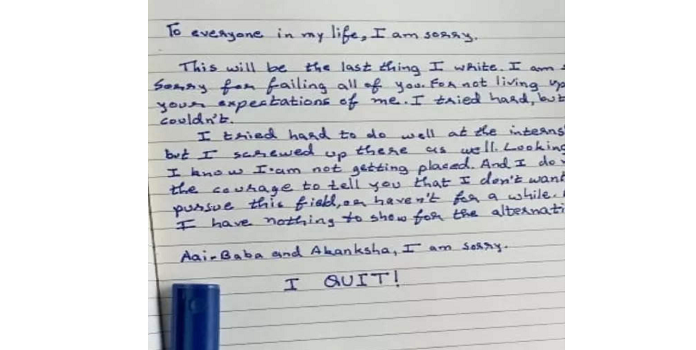 To everyone in my life, I am sorry.
This will be the last thing I write. I am
sorry for failing all of you. For not living up
your expectations of me. I tried hard, but
couldn't.
I tried hard to do well at the interns
but I screwed up there as well. Looking
I know I am not getting placed. And I do
the courage to tell you that I don't want
pursue this field, or haven't for a while.
I have nothing to show for the alternati
Aai-Baba and Akanksha, I am sorry.
I QUIT!